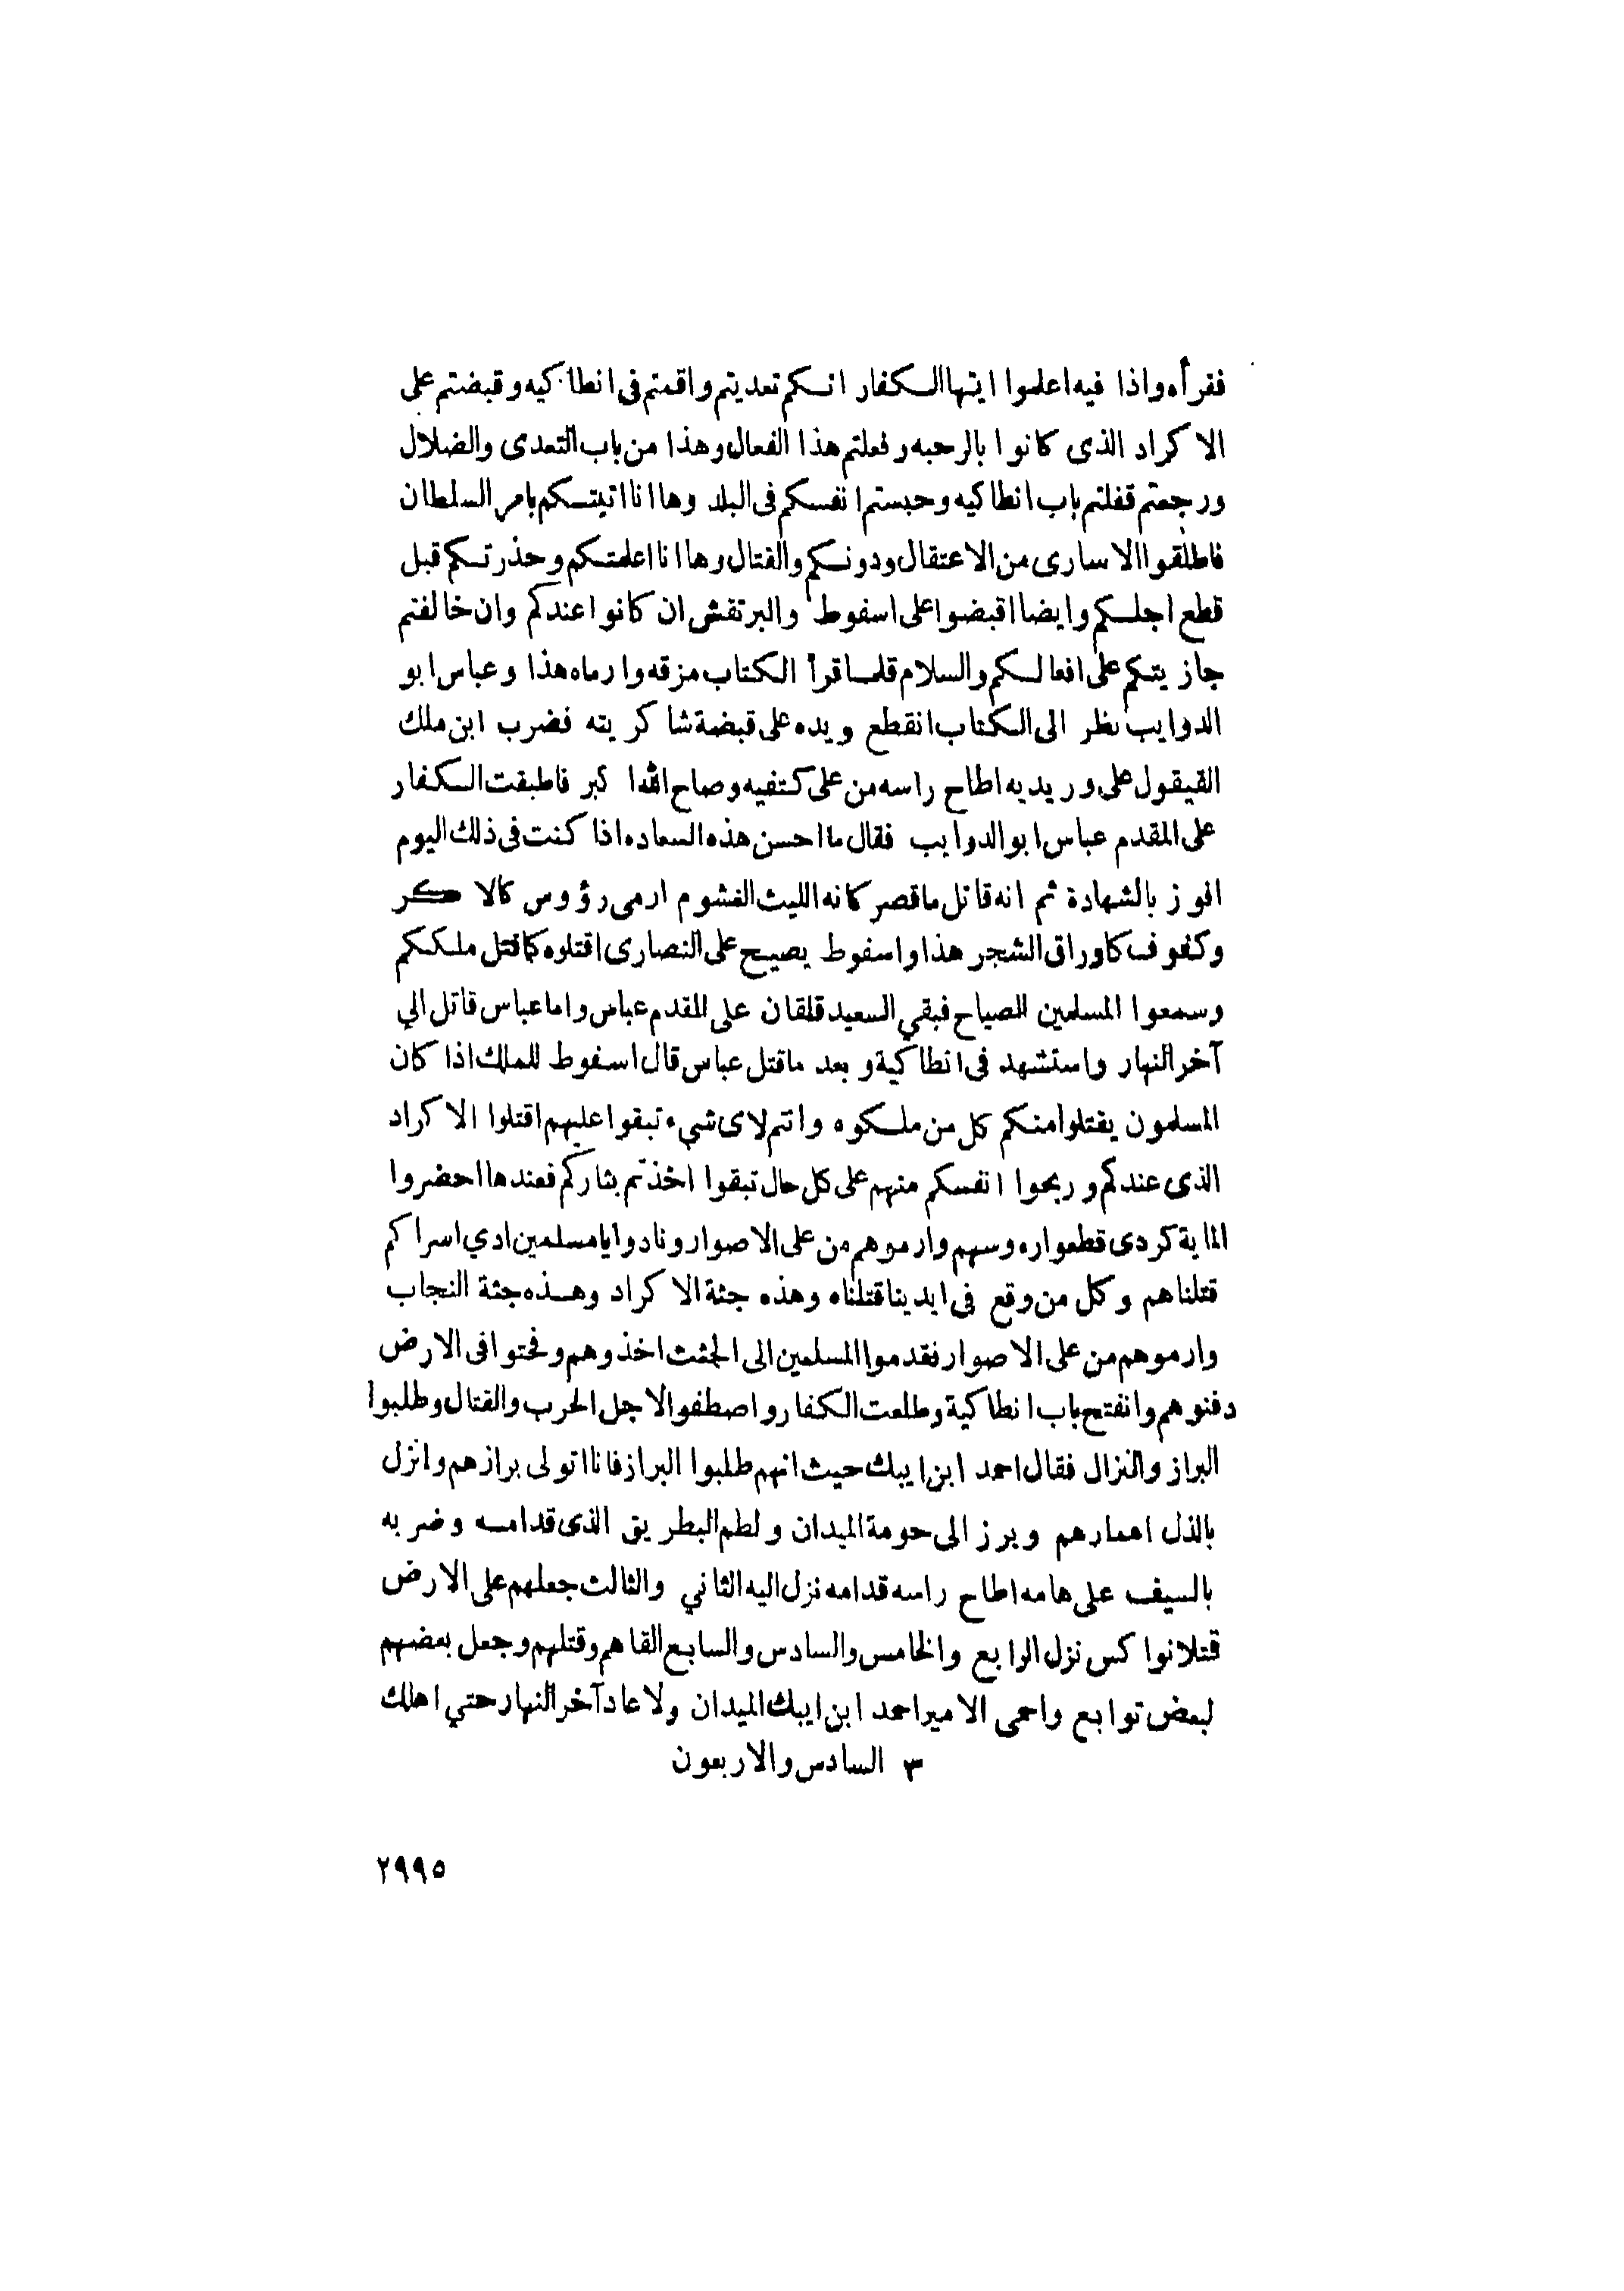 فقرأه واذا فيه اعلموا ايتها الكفار انكم تعديتم واقمتم فى انطاكيه وقبضتم على
الاكراد الذى كانوا بالرحبه وفعلتم هذا الفعال وهذا من باب التعدى والضلال
ورجعتم قفلتم باب انطاكيه وحبستم انفسكم فى البلد وها انا اتيتكم بامر السلطان
فاطلقوا الاسارى من الاعتقال ودونكم والقتال وها انا اعلمتكم وحذرتكم قبل
قطع اجلكم وايضا اقبضوا على اسفوط والبرتقش ان كانوا عندكم وان خالفتم
جازيتكم على افعالكم والسلام قلما قرأ الكتاب مزقه وارماه هذا وعباس ابو
الدوايب نظر الى الكتاب انقطع ويده على قبضة شاكريته فضرب ابن ملك
القيقول على وريديه اطاح راسه من على كتفيه وصاح الله اكبر فاطبقت الكفار
على المقدم عباس ابو الدوايب فقال ما احسن هذه السعاده اذا كنت فى ذلك اليوم
افوز بالشهادة ثم انه قاتل ماقصر كانه الليث الغشوم ارمى رؤوس كالاكر
وكفوف كاوراق الشجر هذا واسفوط يصيح على النصارى اقتلوه كما قتل ملككم
وسمعوا المسلمين الصياح فبقي السعيد قلقان على المقدم عباس واما عباس قاتل الي
آخر النهار واستشهد فى انطاكية وبعد ماقتل عباس قال اسفوط للملك اذا كان
المسلمون يقتلوا منكم كل من ملكوه وانتم لاى شيء تبقوا عليهم اقتلوا الاكراد
الذى عندكم وريحوا انفسكم منهم على كل حال تبقوا اخذتم بثاركم فعندها احضروا
الماية كردى قطعوا روسهم وارموهم من على الاصوار ونادوا يا مسلمين ادي اسراكم
قتلناهم وكل من وقع فى ايدينا قتلناه وهذه جثة الاكراد وهذه جثة النجاب
وارموهم من على الاصوار فقدموا المسلمين الى الجثث اخذوهم وفحتوا فى الارض
دفنوهم وانفتح باب انطاكية وطلعت الكفار واصطفوا لاجل الحرب والقتال وطلبوا
البراز والنزال فقال احمد ابن ايبك حيث انهم طلبوا البراز فانا اتولى برازهم وانزل
بالذل اعمارهم وبرز الى حومة الميدان ولطم البطريق الذى قدامه وضربه
بالسيف على هامه اطاح راسه قدامه نزل اليه الثاني والثالث جعلهم على الارض
قتلا نوا كس نزل الرابع والخامس والسادس والسابع القاهم وقتلهم وجعل بعضهم
لبعض توابع واحمى الامير احمد ابن ايبك الميدان ولا عاد آخر النهار حتي اهلك
٣ السادس والاربعون
٢٩٩٥